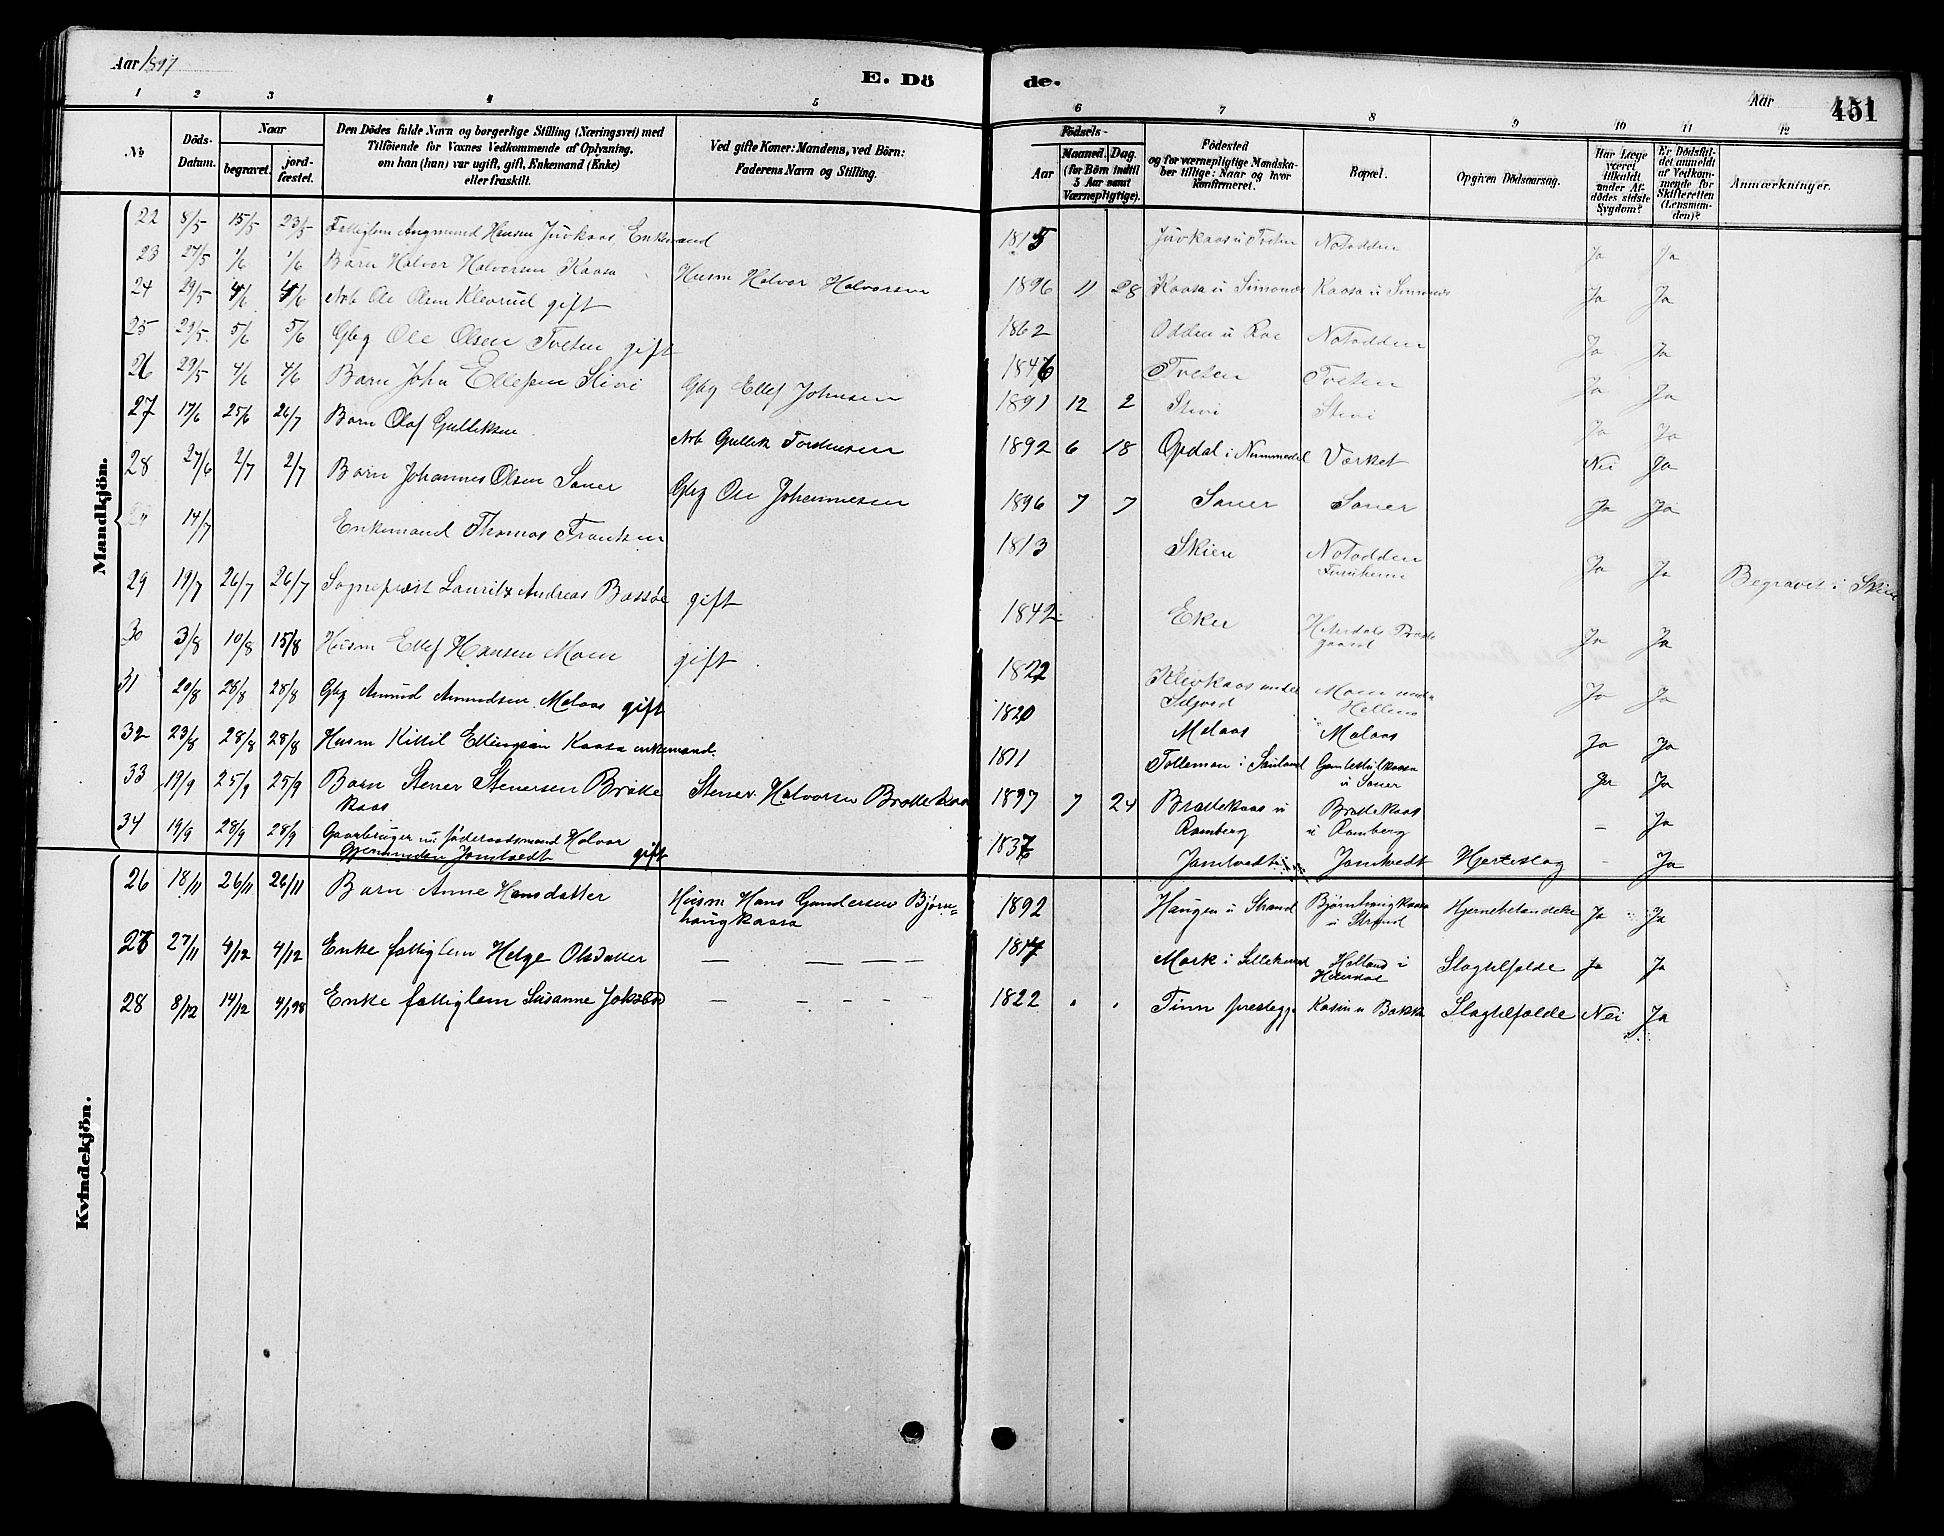 Aar 1897
E. Dö
de.
Aar
451
1 2 3 4 5
6 7 8 9 10 11 12
No
Döds-Datum.
Naar
begravet.
jord-fæstet.
Den Dödes fulde Navn og borgerlige Stilling (Næringsvei) med
Tilföiende for Voxnes Vedkommende af Oplysning,
om han (han) var ugift, gift, Enkemand (Enke)
eller fraskilt.
Ved gifte Koner: Mandens, ved Börn:
Faderens Navn og Stilling.
Födsels-
Aar
Maaned. Dag.
(for Börn indtil
5 Aar samt
Værnepligtige).
Födested
og for værnepligtige Mandska-
ber tillige: Naar og hvor
konfirmeret.
Bopæl.
Opgiven Dödsaarsag.
Har Læge
været
tilkaldt
under Af-
dödes sidste
Sygdom?
Er Dödsfal-
det anmeldt
af Vedkom-
mende for
Skifteretten
(Lensman-
den)?
Anmærkninger.
Mandkjön.
22 8/5 15/5 23/5 Fattiglem Hansen Juvkaas Enkemand 1815 Juvkaas u Tveten Notodden Ja Ja
23 27/5 1/6 1/6 Barn Halvor Halvorsen Kaasa Husm Halvor Halvorsen 1896 11 28 Kaasa u Simones Kaasa u Simones Ja Ja
24 29/5 4/6 4/6 Arb Ole Olsen Klevrud gift 1862 Odden u Notodden Ja Ja
25 29/5 5/6 5/6 Gbg Ole Olsen Tveten gift 1846 Tveten Tveten Ja Ja
26 29/5 4/6 4/6 Barn John Ellefsen Stivi Gbg Ellef Johnsen 1891 12 2 Stivi Stivi Ja Ja
27 17/6 25/6 26/7 Barn Olaf Gulliksen Arb Gullik Torstensen 1892 6 18 Opdal i Nummedal Værket Nei Ja
28 27/6 2/7 2/7 Barn Johannes Olsen Saner Gbg Ole Johannesen 1896 7 7 Saner Saner Ja Ja
14/7 Enkemand Thomas Frantzen 1813 Skien Notodden Furuheim Ja Ja Begravet i Skien
29 19/7 26/7 26/7 Sogneprest Lauritz Andreas Bassøe gift 1842 Eker Hiterdals Ja Ja
30 3/8 10/8 15/8 Husm Ellef Hansen Moen gift 1822 Klevkaas under Moen under Ja Ja
31 20/8 28/8 28/8 Gbg Amund Amundsen Melaas gift 1820 Melaas Melaas Ja Ja
32 23/8 28/8 28/8 Husm Kittil Ellingsen Kaasa enkemand 1811 i Sauland u Saner Ja Ja
33 19/9 25/9 25/9 Barn Stener Stenersen Bråtte
kaas Stener Halvorsen 1897 7 24 Bråttekaas u
Ramberg Bråttekaas
u Ramberg – Ja
34 19/9 28/9 28/9 Gaarbruger nu föderaadsmand Halvor
Jamtvedt gift 1837 Jamtvedt Jamtvedt Herteslag – Ja
Kvindekjön.
26 18/11 26/11 26/11 Barn Anne Hansdatter Husm Hans Gundersen Bjørn-
haugkaasa 1892 Haugen u Strand Bjørnhaugkaasa
u Strand Hjernebetændelse Ja Ja
27 27/11 4/12 4/12 Enke fattiglem Helge Olsdatter – – – – 1817 Mork i Lilleherred Holland i
Hiterdal Slagtilfælde Ja Ja
28 8/12 14/12 4/1 98 Enke fattiglem Susanne Jakobsd – – – – 1822 Tinn prestegj. Kasin u Bakka Slagtilfælde Nei Ja